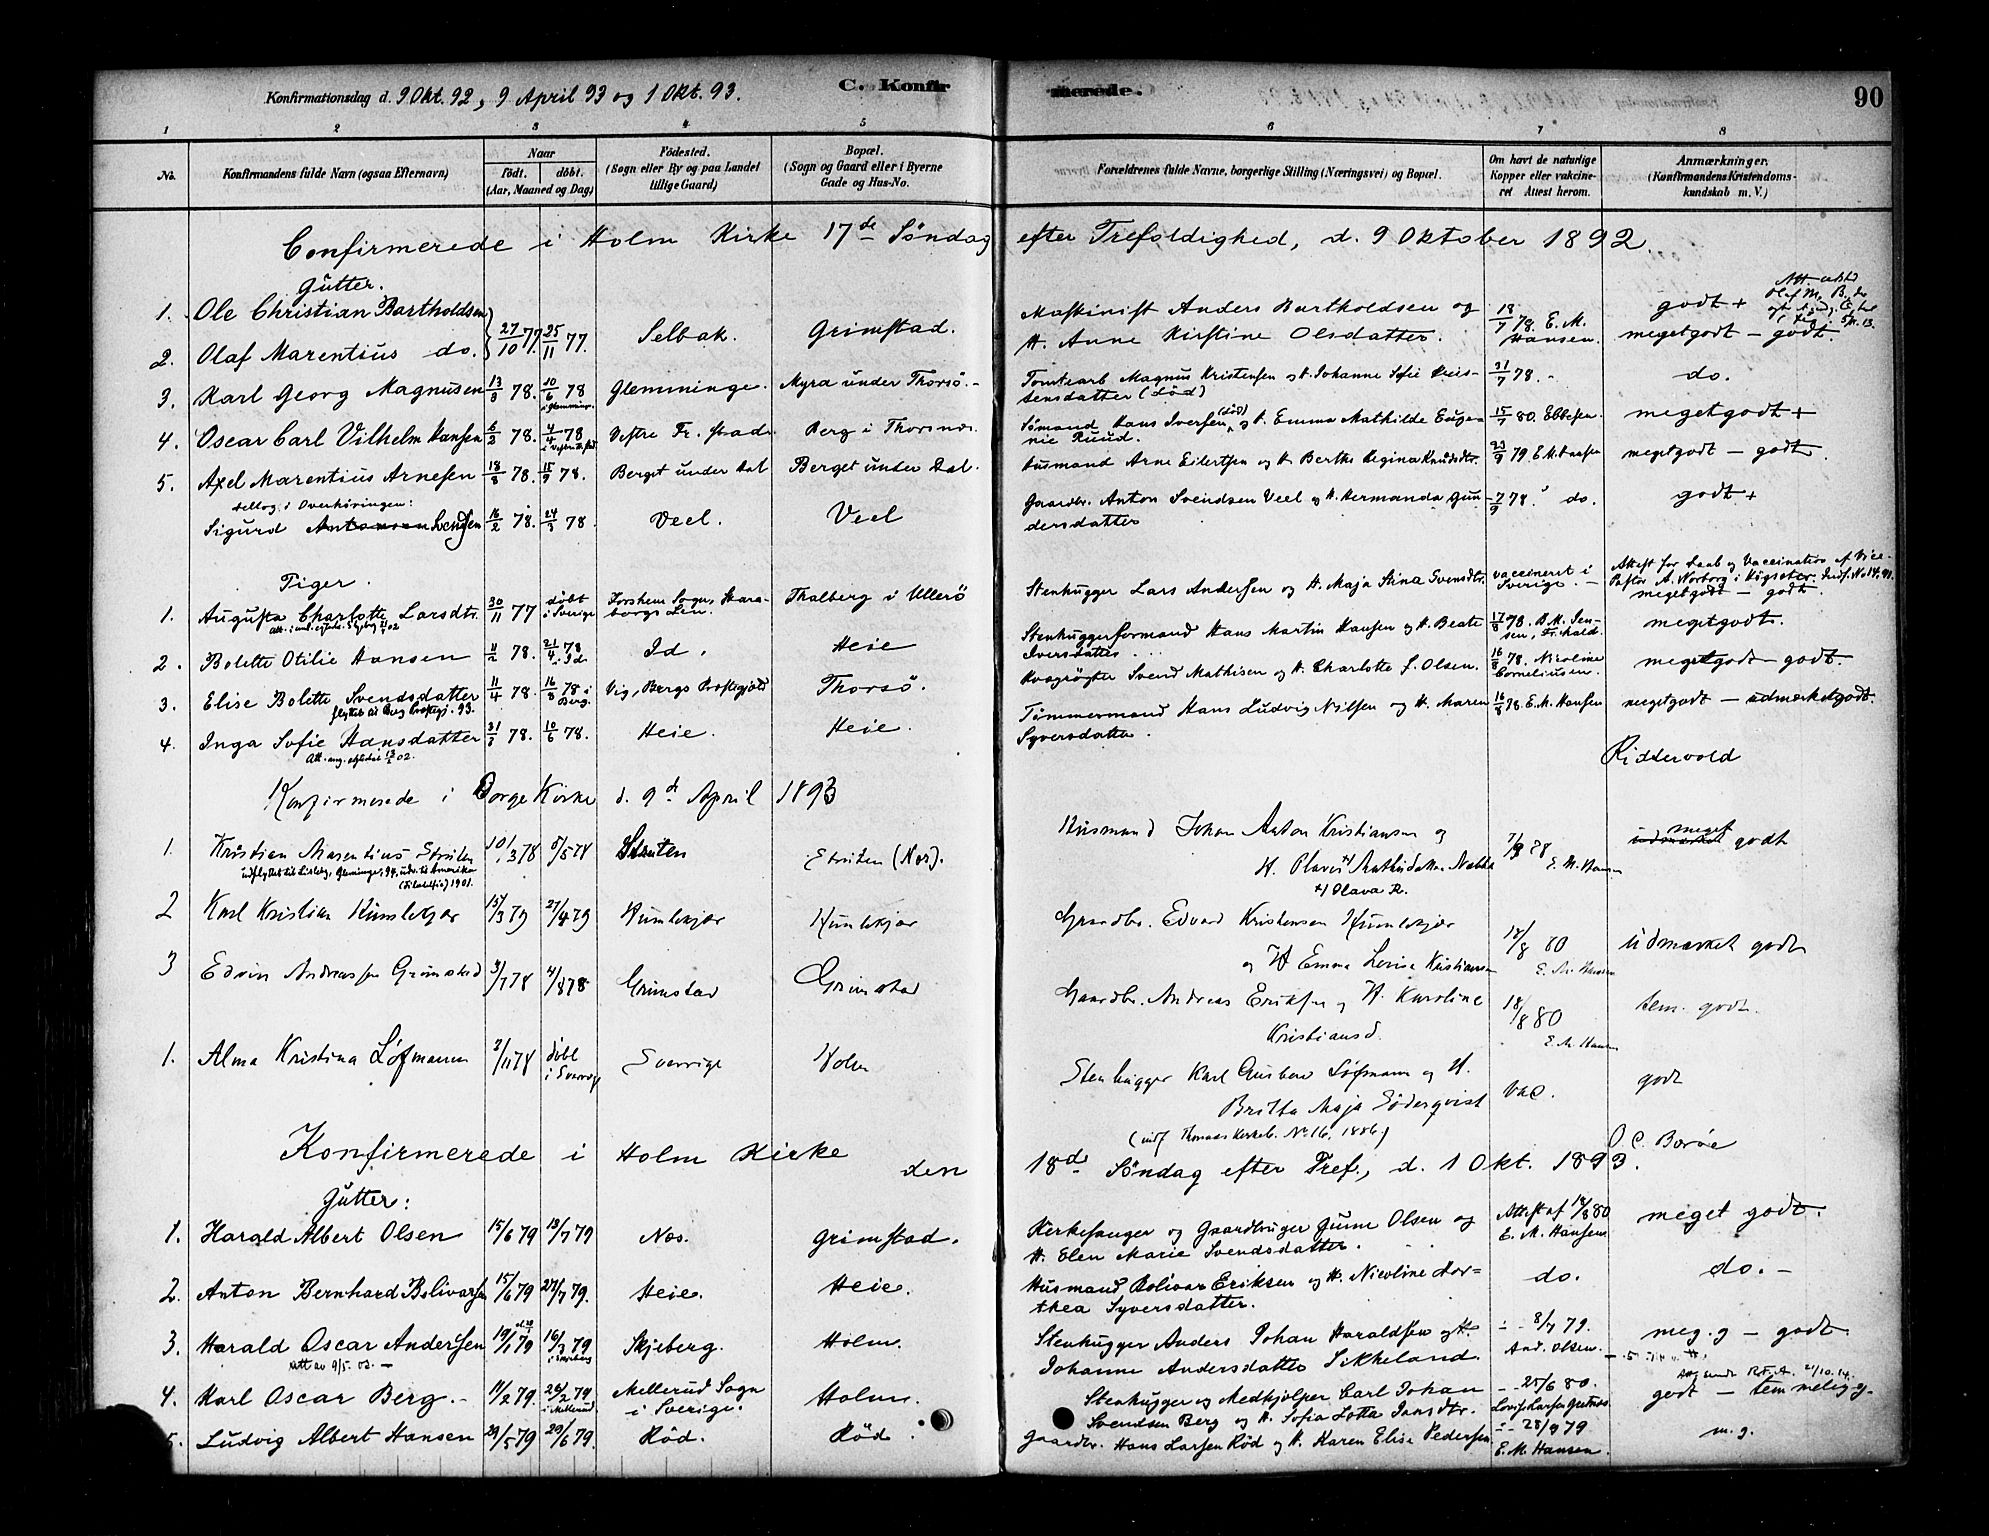 Konfirmationsdag d. 9 Okt. 92, 9 April 93 og 1 Okt. 93. C. Konfir merede. 90
1 2 3 4 5 6 7 8
No. Konfirmandens fulde Navn (ogsaa Efternavn) Naar født. døbt. (Aar, Maaned og Dag) Fødested. (Sogn eller By og paa Landet tillige Gaard) Bopæl. (Sogn og Gaard eller i Byerne Gade og Hus-No. Forældrenes fulde Navne, borgerlige Stilling (Næringsvei) og Bopæl. Om havt de naturlige Kopper eller vakcineret Attest herom. Anmærkninger. (Konfirmandens Kristendomskundskab m. V.)
Confirmerede i Holm Kirke 17de Søndag efter Trefoldighed, d. 9 Oktober 1892.
Gutter.
1. Ole Christian Bartholdsen 27/10 77. 25/11 77. Selbak. Grimstad. Maskinist Anders Bartholdsen og 18/7 78. E. M. Hansen. godt +
2. Olaf Marentius do. H. Anne Kirstine Olsdatter. megetgodt – godt.
3. Karl Georg Magnusen 13/3 78. 10/6 78 i Glemminge. Glemminge. Myra under Thorsø. Tomtearb. Magnus Kristensen og H. Johanne Sofie Kristensdatter (død) 31/7 78. do.
4. Oscar Carl Vilhelm Hansen 6/2 78. 4/4 78 Vestre Fr.stad. Berg i Thorsnæs. Sømand Hans Iversen (død) og H. Emma Mathilde Eugenie Ruud. 15/7 80. Ebbesen. megetgodt +
5. Axel Marentius Arnesen 18/8 78. 15/9 78. Berget under Dal Berget under Dal. Husmand Arne Eilertsen og H. Berthe Regina Knudsdtr. 23/9 79. E. M. Hansen megetgodt – godt.
deltog i Overhøringen:
Sigurd Antonsen Svendsen 16/2 78. 24/3 78. Veel. Veel Gaardbr. Anton Svendsen Veel og H. Hermanda Gundersdatter 7/9 78. do. godt +
Piger.
1. Augusta Charlotte Larsdtr. 30/11 77 døbt i Sverige Forshem Sogn, Skaraborgs Len. Thalberg i Ullerø Stenhugger Lars Andersen og H. Maja Stina Svensdtr. vaccineret i Sverige. – Attest for Daab og Vaccination af Vice-Pastor A. Norborg i
megetgodt – godt.
2. Bolette Otilie Hansen 11/2 78. 21/4 78 i Id. Id. Heie Stenhuggerformand Hans Martin Hansen og H. Beate Iversdatter. 17/8 78. B. M. Jensen, Fr.hald. megetgodt.
3. Elise Bolette Svendsdatter 11/4 78. 16/8 78 i Berg. Vig, Bergs Prestegjeld Thorsø. Kvægrøgter Svend Mathisen og H. Charlotte f. Olsen. 16/8 78. Nicoline Corneliussen. megetgodt – godt.
flyttet til Berg Prestegj. 93.
4. Inga Sofie Hansdatter 31/3 78. 10/6 78. Heie. Heie. Tømmermand Hans Ludvig Nilsen og H. Maren Syversdatter. 16/8 78. E. M. Hansen megetgodt – udmærketgodt.
Ridderwold
Konfirmerede i Borge Kirke d. 9de April 1893
1. Kristian Marentius Struten 10/3 78 5/5 78 Struten Struten (Nes). Husmand Johan Anton Kristiansen og 7/9 78 E. M. Hansen udmærket meget godt
udflyttet til Lisleby, Glemminge, 94, udv. til Amerika
1901. +) Olava R.
2 Karl Kristian Humlekjær 15/3 79 27/4 79 Humlekjær Humlekjær Gaardbr. Edvard Kristensen Humlekjær 18/8 80 udmærket godt
og H. Emma Lovise Kristiansen E. M. Hansen
3 Edvin Andreassen Grimstad 3/7 78 4/8 78 Grimstad Grimstad Gaardbr. Andreas Eriksen og H. Karoline 18/8 80 tem. godt.
Kristiansd. E. M. Hansen
1. Alma Kristina Løfmann 2/11 78 døbt i Sverrige Sverrige Holm Stenhugger Karl Gustav Løfmann og H. vac. godt
Britta Maja Søderqvist
(indf. Thomas Kirkeb. No 16, 1886)
O. C. Borøe
Konfirmerede i Holm Kirke den 18de Søndag efter Tref., d. 1 Okt. 1893.
Gutter:
1. Harald Albert Olsen 15/6 79 13/7 79 Nes. Grimstad. Kirkesanger og Gaardbruger Gunne Olsen og H. Elen Marie Svendsdatter. Attest af 18/8 80 E. M. Hansen meget godt.
2. Anton Bernhard Bolivarsen 15/6 79 27/7 79. Heie. Heie. Husmand Bolivar Eriksen og H. Nicoline Dorthea Syversdatter. do. do. –
3. Harald Oscar Andersen 19/1 79 16/3 79 i Skjeberg Skjeberg. Holm. Stenhugger Anders Johan Haraldsen og H. Johanne Andersdatter Sikkeland. 8/7 79. And. Olsen. meg. g – godt
att av 9/5. 03. –
4. Karl Oscar Berg. – 11/2 79. 26/2 79. i Mellerud Mellerud Sogn i Sverige. Holm. Stenhugger og Medhjelper Carl Johan Svendsen Berg og H. Sofia Lotta Jansdtr. 25/6 80. godt – temmelig g.
5. Ludvig Albert Hansen 29/5 79 29/6 79. Rød. Rød. Gaardbr. Hans Larsen Rød og H. Karen Elise Pedersen 28/9 79 E. M. Hansen. m. g.